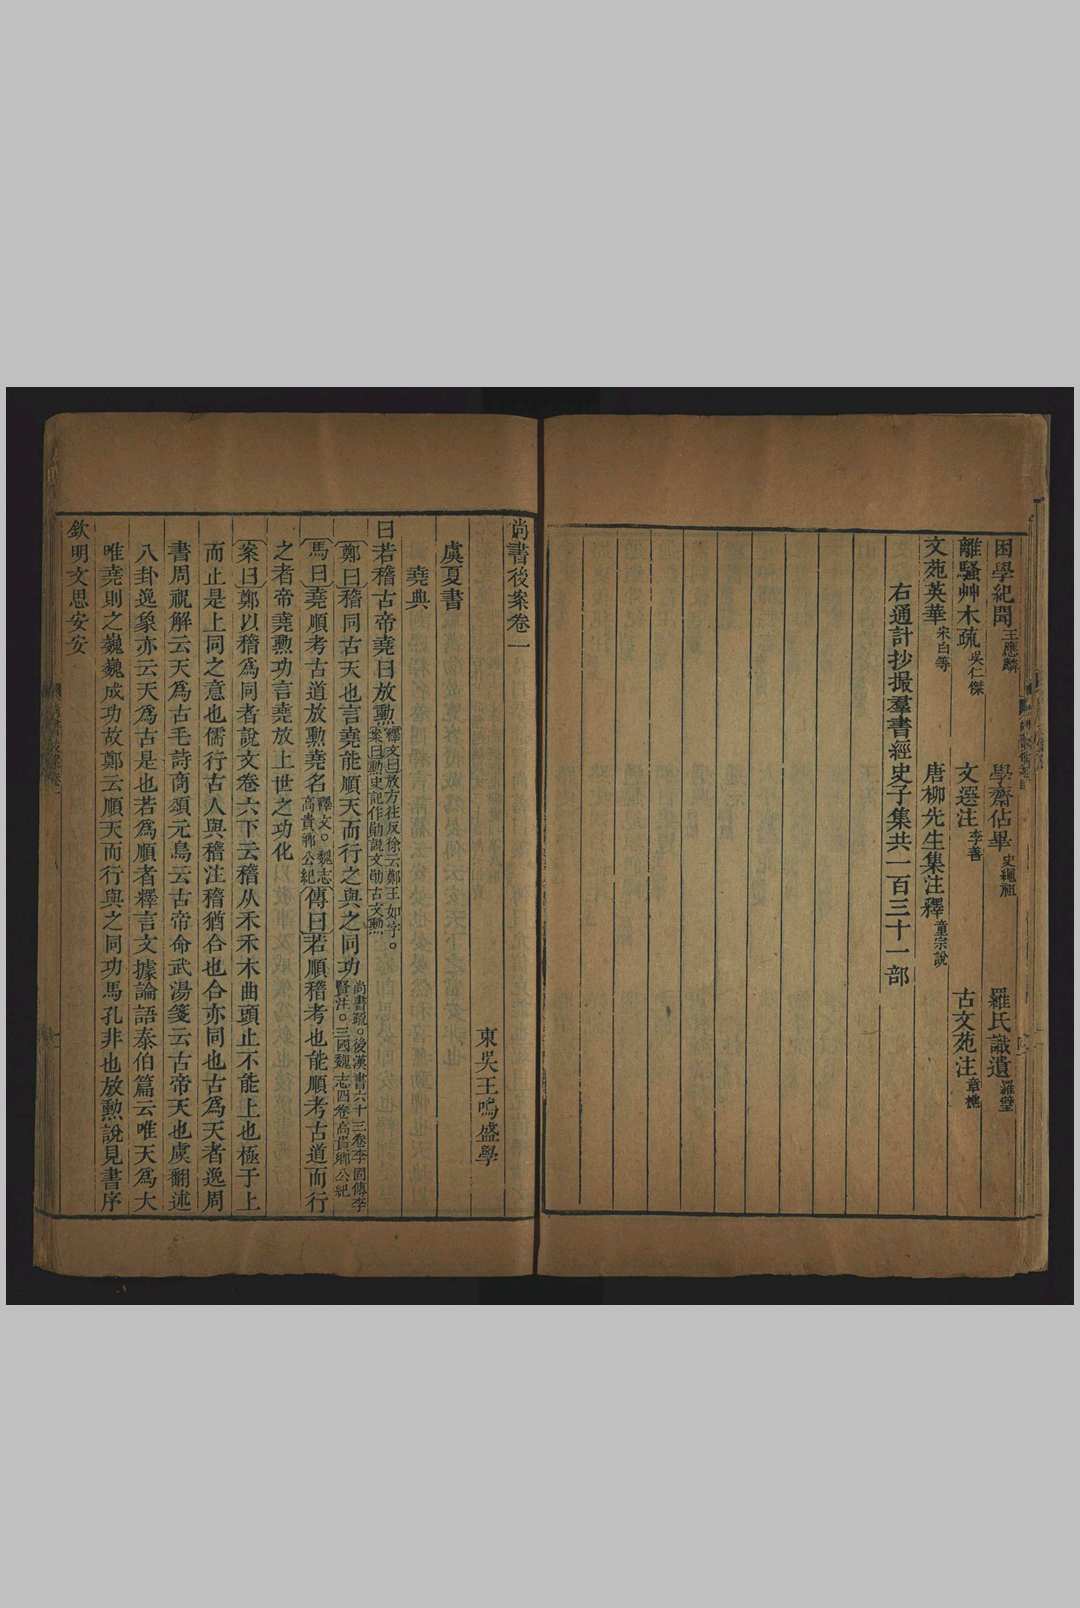 困學紀聞王應麟 學齋佔畢史繩祖 羅氏識遺羅璧
離騷艸木疏吳仁傑 文選注李善 古文苑注章樵
文苑英華宋白等 唐柳先生集注釋童宗說
右通計抄撮羣書經史子集共一百三十一部
尚書後案卷一
東吳王鳴盛學
虞夏書
堯典
曰若稽古帝堯曰放勲釋文曰放方往反徐云鄭王如字。案曰勲史記作勛說文勛古文勲
鄭曰稽同古天也言堯能順天而行之與之同功尚書疏。後漢書六十三卷李固傳李賢注。三國魏志四卷高貴鄉公紀
馬曰堯順考古道放勲堯名釋文。魏志高貴鄉公紀傳曰若順稽考也能順考古道而行
之者帝堯勲功言堯放上世之功化
案曰鄭以稽爲同者說文卷六下云稽从禾禾木曲頭止不能上也極于上
而止是上同之意也儒行古人與稽注稽猶合也合亦同也古爲天者逸周
書周祝解云天爲古毛詩商頌元鳥云古帝命武湯箋云古帝天也虞翻述
八卦逸象亦云天爲古是也若爲順者釋言文據論語泰伯篇云唯天爲大
唯堯則之巍巍成功故鄭云順天而行與之同功馬孔非也放勲說見書序
欽明文思安安